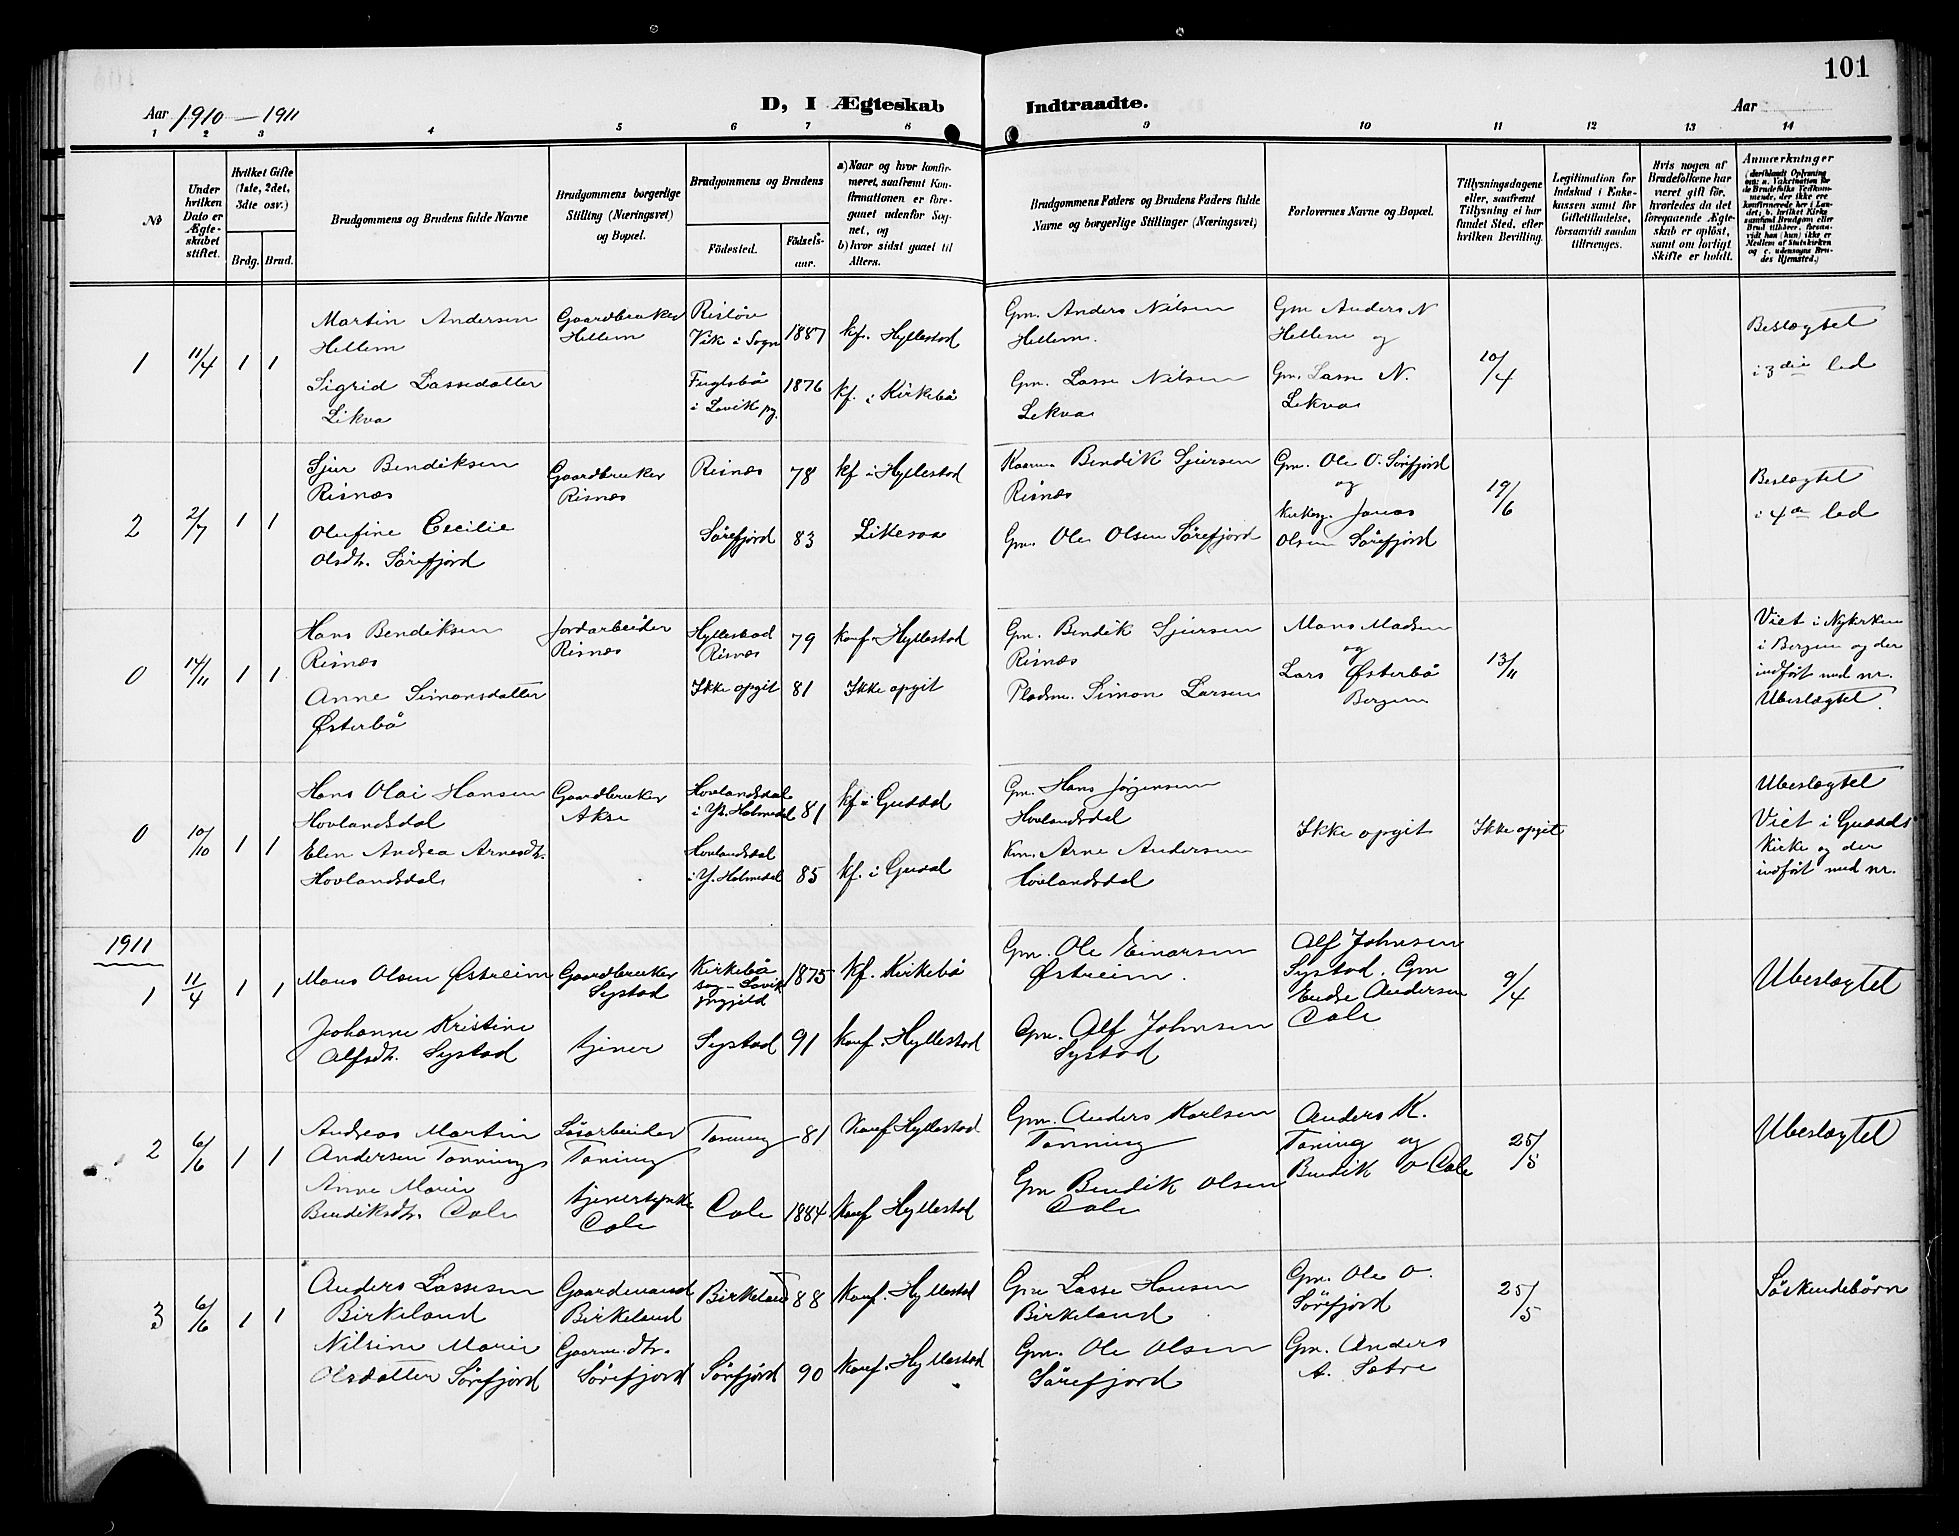 101
Aar 1910 — 1911
D, I Ægteskab Indtraadte.
Aar
1 2 3 4 5 6 7 8 9 10 11 12 13 14
No
Under hvilken Dato er Ægteskabet stiftet.
Hvilket Gifte (1ste, 2det, 3dte osv.)
Brdg. Brud.
Brudgommens og Brudens fulde Navne
Brudgommens borgerlige Stilling (Næringsvei) og Bopæl.
Brudgommens og Brudens
Fødested.
Fødselsaar.
a) Naar og hvor konfirmeret, saafremt Konfirmationen er foregaaet udenfor Sognet, og
b) hvor sidst gaaet til Alters.
Brudgommens Faders og Brudens Faders fulde Navne og borgerlige Stillinger (Næringsvei)
Forlovernes Navne og Bopæl.
Tillysningsdagene eller, saafremt Tillysning ei har fundet Sted, efter hvilken Bevilling.
Legitimation for Indskud i Enkekassen samt for Giftetilladelse, forsaavidt saadan tiltrænges.
Hvis nogen af Brudefolkene har været gift før, hvorledes da det foregaaende Ægteskab er opløst, samt om lovligt Skifte er holdt.
Anmærkninger
(deriblandt Oplysning om: a. Vakcination for de Brudefolks Vedkommende, der ikke ere konfirmerede her i Landet; b. hvilket Kirkesamfund Brudgom eller Brud tilhører, forsaavidt han (hun) ikke er Medlem af Statskirken og c. udensogns Brudes Hjemsted.)
1 11/4 1 1
Martin Andersen
Hellem
Sigrid Lassedatter
Likva
Gaardbruker
Hellem
Risløv
Vik i Sogn
1887
Fuglsbø
i Lavik pg.
1876
kf. Hyllestad
kf. i Kirkebø
Gm. Anders Nilsen
Hellem.
Gm. Lasse Nilsen
Lekva
Gm Anders N
Hellem og
Gm. Lasse N.
Lekva
10/4
Beslægtet
i 3die led
2 2/7 1 1
Sjur Bendiksen
Risnæs
Olufine Cecilie
Olsdtr. Sørefjord
Gaardbruker
Risnæs
Risnæs 78
Sørefjord 83
kf i Hyllestad
Likesaa
Kaarm Bendik Sjursen
Risnæs
Gm. Ole Olsen Sørefjord
Gm. Ole O. Sørefjord
og
Kirkesg. Jonas
Olsen Sørefjord
19/6
Beslægtet
i 4de led
0 14/11 1 1
Hans Bendiksen
Risnæs
Anne Simonsdatter
Østerbø
Jordarbeider
Risnæs
Hyllestad
Risnæs
79
Ikke opgit 81
konf. Hyllestad
Ikke opgit
Gm. Bendik Sjursen
Risnæs
Pladsm. Simon Larsen
Mons Madsen
og
Lars Østerbø
Bergen
13/11
Viet i Nykirken
i Bergen og der
indført med nr.
Ubeslægtet.
0 10/10 1 1
Hans Olai Hansen
Hovlandsdal
Elen Andrea Arnesdtr.
Hovlandsdal
Gaardbruker
Akse
Hovlandsdal
i Yt. Holmedal
81
Hovlandsdal
i Y. Holmedal
85
kf i Guddal
kf. i Gudal
Gm. Hans Jørgensen
Hovlandsdal
Km. Arne Andersen
Hovlandsdal
Ikke opgit
Ikke opgit
Ubeslægtet
Viet i Guddals
Kirke og der
indført med nr.
1911
1 11/4 1 1
Mons Olsen Østreim
Johanne Kristine
Alfsdtr. Systad
Gaardbruker
Systad
tjener
Kirkebø
sogn Lavik
prgjeld
1875
Systad 91
kf. Kirkebø
konf. Hyllestad
Gm. Ole Einarsen
Østreim.
Gm. Alf Johnsen
Systad
Alf Johnsen
Systad. Gm
Endre Andersen
Cole
9/4
Ubeslægtet
2 6/6 1 1
Andreas Martin
Andersen Tonning
Anne Marie
Bendiksdtr. Cole
Løsarbeider
Toning
Cole
Tonning 81
Cole 1884
Konf Hyllestad
Konf Hyllestad
Gm. Anders Karlsen
Tonning
Gm Bendik Olsen
Cole
Anders K.
Toning og
Bendik O Cole
25/5
Ubeslægtet
3 6/6 1 1
Anders Lassesen
Birkeland
Nilsine Marie
Olsdatter Sørefjord
Gaardmand
Birkeland
Gaarm. dtr.
Sørefjord
Birkeland 88
Sørefjord 90
Konf. Hyllestad
Konf. Hyllestad
Gm Lasse Hansen
Birkeland
Gm. Ole Olsen
Sørefjord
Gm. Ole O.
Sørefjord
Gm. Anders
A. Sætre
25/5
Søskendebørn